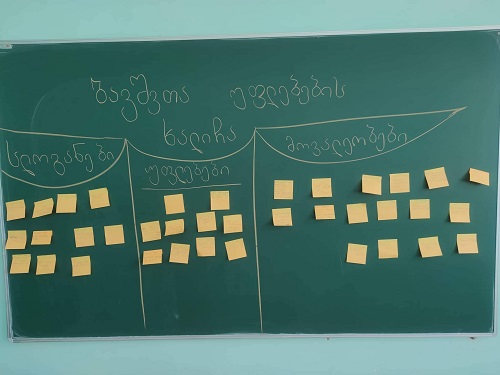 ბავშვთა უფლებების
ხალიჩა
სლოგანები
უფლებები
მოვალეობები